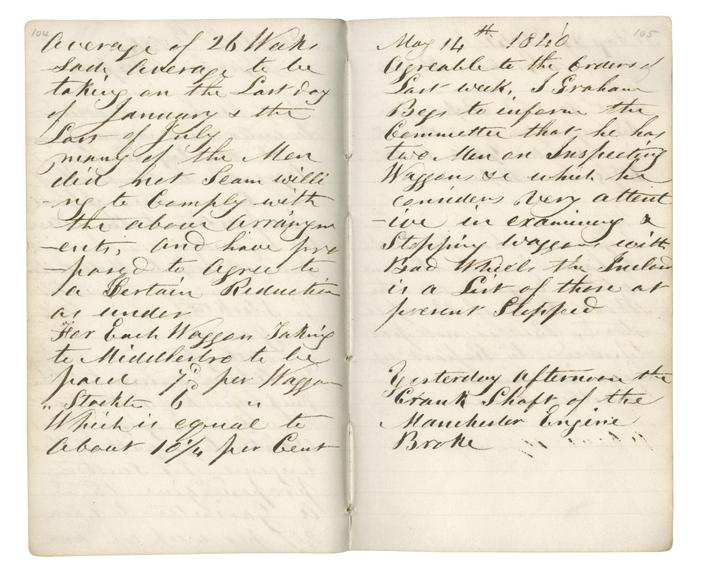 104
Average of 26 Weeks
Said Average to be
taking on the Last day
of January & the
Last of July
many of the Men
did not Seam willi
-ng to Comply with
the above Arrangm
-ents, and have pro
-posed to Agree to
a Certain Reduction
as under
For Each Waggon Taking
to Middlesbro to be
paid 7d per Waggon
" Stockton 6 "
Which is equal to
About 10¼ per Cent
105
May 14th 1840
Agreable to the Orders of
Last week, J Graham
Begs to inform the
Committee that he has
two Men on Inspecting
Waggons &c which he
considers Very attent
-ive in examining &
Stopping Waggons with
Bad Wheels the Inclosed
is a List of those at
present Stopped
Yesterday Afternoon the
Crank Shaft of the
Manchester Engine
Broke